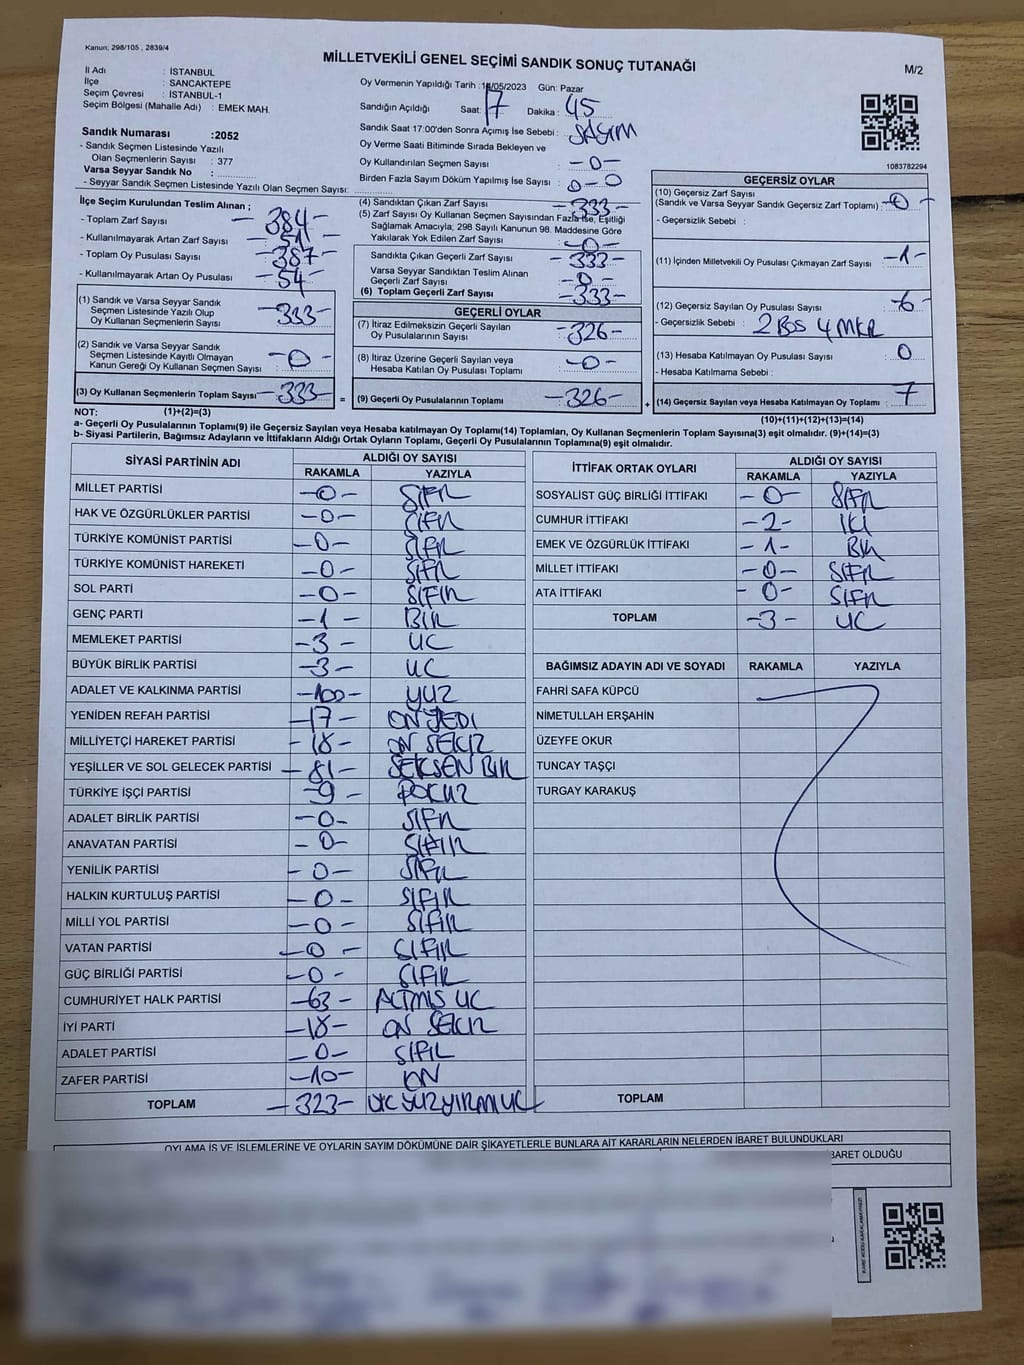 Kanun: 298/105 , 2839/4
MİLLETVEKİLİ GENEL SEÇİMİ SANDIK SONUÇ TUTANAĞI
M/2
İl Adı : İSTANBUL
İlçe : SANCAKTEPE
Seçim Çevresi : İSTANBUL-1
Seçim Bölgesi (Mahalle Adı) : EMEK MAH.
Sandık Numarası :2052
- Sandık Seçmen Listesinde Yazılı
Olan Seçmenlerin Sayısı : 377
Varsa Seyyar Sandık No :
- Seyyar Sandık Seçmen Listesinde Yazılı Olan Seçmen Sayısı:
Oy Vermenin Yapıldığı Tarih :14/05/2023 Gün: Pazar
Sandığın Açıldığı Saat: 17 Dakika : 45
Sandık Saat 17:00'den Sonra Açımış İse Sebebi : SAYIM
Oy Verme Saati Bitiminde Sırada Bekleyen ve
Oy Kullandırılan Seçmen Sayısı : -0-
Birden Fazla Sayım Döküm Yapılmış İse Sayısı : 0-0
1083782294
İlçe Seçim Kurulundan Teslim Alınan ;
- Toplam Zarf Sayısı : -384-
- Kullanılmayarak Artan Zarf Sayısı : -51-
- Toplam Oy Pusulası Sayısı : -387-
- Kullanılmayarak Artan Oy Pusulası : -54-
(1) Sandık ve Varsa Seyyar Sandık
Seçmen Listesinde Yazılı Olup
Oy Kullanan Seçmenlerin Sayısı : -333-
(2) Sandık ve Varsa Seyyar Sandık
Seçmen Listesinde Kayıtlı Olmayan
Kanun Gereği Oy Kullanan Seçmen Sayısı : -0-
(3) Oy Kullanan Seçmenlerin Toplam Sayısı -333- =
(4) Sandıktan Çıkan Zarf Sayısı : -333-
(5) Zarf Sayısı Oy Kullanan Seçmen Sayısından Fazla İse, Eşitliği
Sağlamak Amacıyla, 298 Sayılı Kanunun 98. Maddesine Göre
Yakılarak Yok Edilen Zarf Sayısı : -0-
Sandıkta Çıkan Geçerli Zarf Sayısı : -333-
Varsa Seyyar Sandıktan Teslim Alınan
Geçerli Zarf Sayısı : -0-
(6) Toplam Geçerli Zarf Sayısı : -333-
GEÇERLİ OYLAR
(7) İtiraz Edilmeksizin Geçerli Sayılan
Oy Pusulalarının Sayısı : -326-
(8) İtiraz Üzerine Geçerli Sayılan veya
Hesaba Katılan Oy Pusulası Toplamı : -0-
(9) Geçerli Oy Pusulalarının Toplamı : -326- +
GEÇERSİZ OYLAR
(10) Geçersiz Zarf Sayısı
(Sandık ve Varsa Seyyar Sandık Geçersiz Zarf Toplamı) : -0-
- Geçersizlik Sebebi :
(11) İçinden Milletvekili Oy Pusulası Çıkmayan Zarf Sayısı : -1-
(12) Geçersiz Sayılan Oy Pusulası Sayısı : -6-
- Geçersizlik Sebebi : 2 BOS 4 MKR
(13) Hesaba Katılmayan Oy Pusulası Sayısı : 0
- Hesaba Katılmama Sebebi :
(14) Geçersiz Sayılan veya Hesaba Katılmayan Oy Toplamı : 7
NOT: (1)+(2)=(3)
(10)+(11)+(12)+(13)=(14)
a- Geçerli Oy Pusulalarının Toplamı(9) ile Geçersiz Sayılan veya Hesaba katılmayan Oy Toplamı(14) Toplamları, Oy Kullanan Seçmenlerin Toplam Sayısına(3) eşit olmalıdır. (9)+(14)=(3)
b- Siyasi Partilerin, Bağımsız Adayların ve İttifakların Aldığı Ortak Oyların Toplamı, Geçerli Oy Pusulalarının Toplamına(9) eşit olmalıdır.
SİYASİ PARTİNİN ADI ALDIĞI OY SAYISI
RAKAMLA YAZIYLA
MİLLET PARTİSİ -0- SIFIR
HAK VE ÖZGÜRLÜKLER PARTİSİ -0- SIFIR
TÜRKİYE KOMÜNİST PARTİSİ -0- SIFIR
TÜRKİYE KOMÜNİST HAREKETİ -0- SIFIR
SOL PARTİ -0- SIFIR
GENÇ PARTİ -1- BIR
MEMLEKET PARTİSİ -3- UC
BÜYÜK BİRLİK PARTİSİ -3- UC
ADALET VE KALKINMA PARTİSİ -100- YUZ
YENİDEN REFAH PARTİSİ -17- ON YEDI
MİLLİYETÇİ HAREKET PARTİSİ -18- ON SEKIZ
YEŞİLLER VE SOL GELECEK PARTİSİ -81- SEKSEN BIR
TÜRKİYE İŞÇİ PARTİSİ -9- DOKUZ
ADALET BİRLİK PARTİSİ -0- SIFIR
ANAVATAN PARTİSİ -0- SIFIR
YENİLİK PARTİSİ -0- SIFIR
HALKIN KURTULUŞ PARTİSİ -0- SIFIR
MİLLİ YOL PARTİSİ -0- SIFIR
VATAN PARTİSİ -0- SIFIR
GÜÇ BİRLİĞİ PARTİSİ -0- SIFIR
CUMHURİYET HALK PARTİSİ -63- ALTMIS UC
İYİ PARTİ -18- ON SEKIZ
ADALET PARTİSİ -0- SIFIR
ZAFER PARTİSİ -10- ON
TOPLAM -323- UC YUZ YIRMI UC
İTTİFAK ORTAK OYLARI ALDIĞI OY SAYISI
RAKAMLA YAZIYLA
SOSYALİST GÜÇ BİRLİĞİ İTTİFAKI -0- SIFIR
CUMHUR İTTİFAKI -2- IKI
EMEK VE ÖZGÜRLÜK İTTİFAKI -1- BIR
MİLLET İTTİFAKI -0- SIFIR
ATA İTTİFAKI -0- SIFIR
TOPLAM -3- UC
BAĞIMSIZ ADAYIN ADI VE SOYADI RAKAMLA YAZIYLA
FAHRİ SAFA KÜPCÜ
NİMETULLAH ERŞAHİN
ÜZEYFE OKUR
TUNCAY TAŞÇI
TURGAY KARAKUŞ
TOPLAM
OYLAMA İŞ VE İŞLEMLERİNE VE OYLARIN SAYIM DÖKÜMÜNE DAİR ŞİKAYETLERLE BUNLARA AİT KARARLARIN NELERDEN İBARET BULUNDUKLARI
BARET OLDUĞU